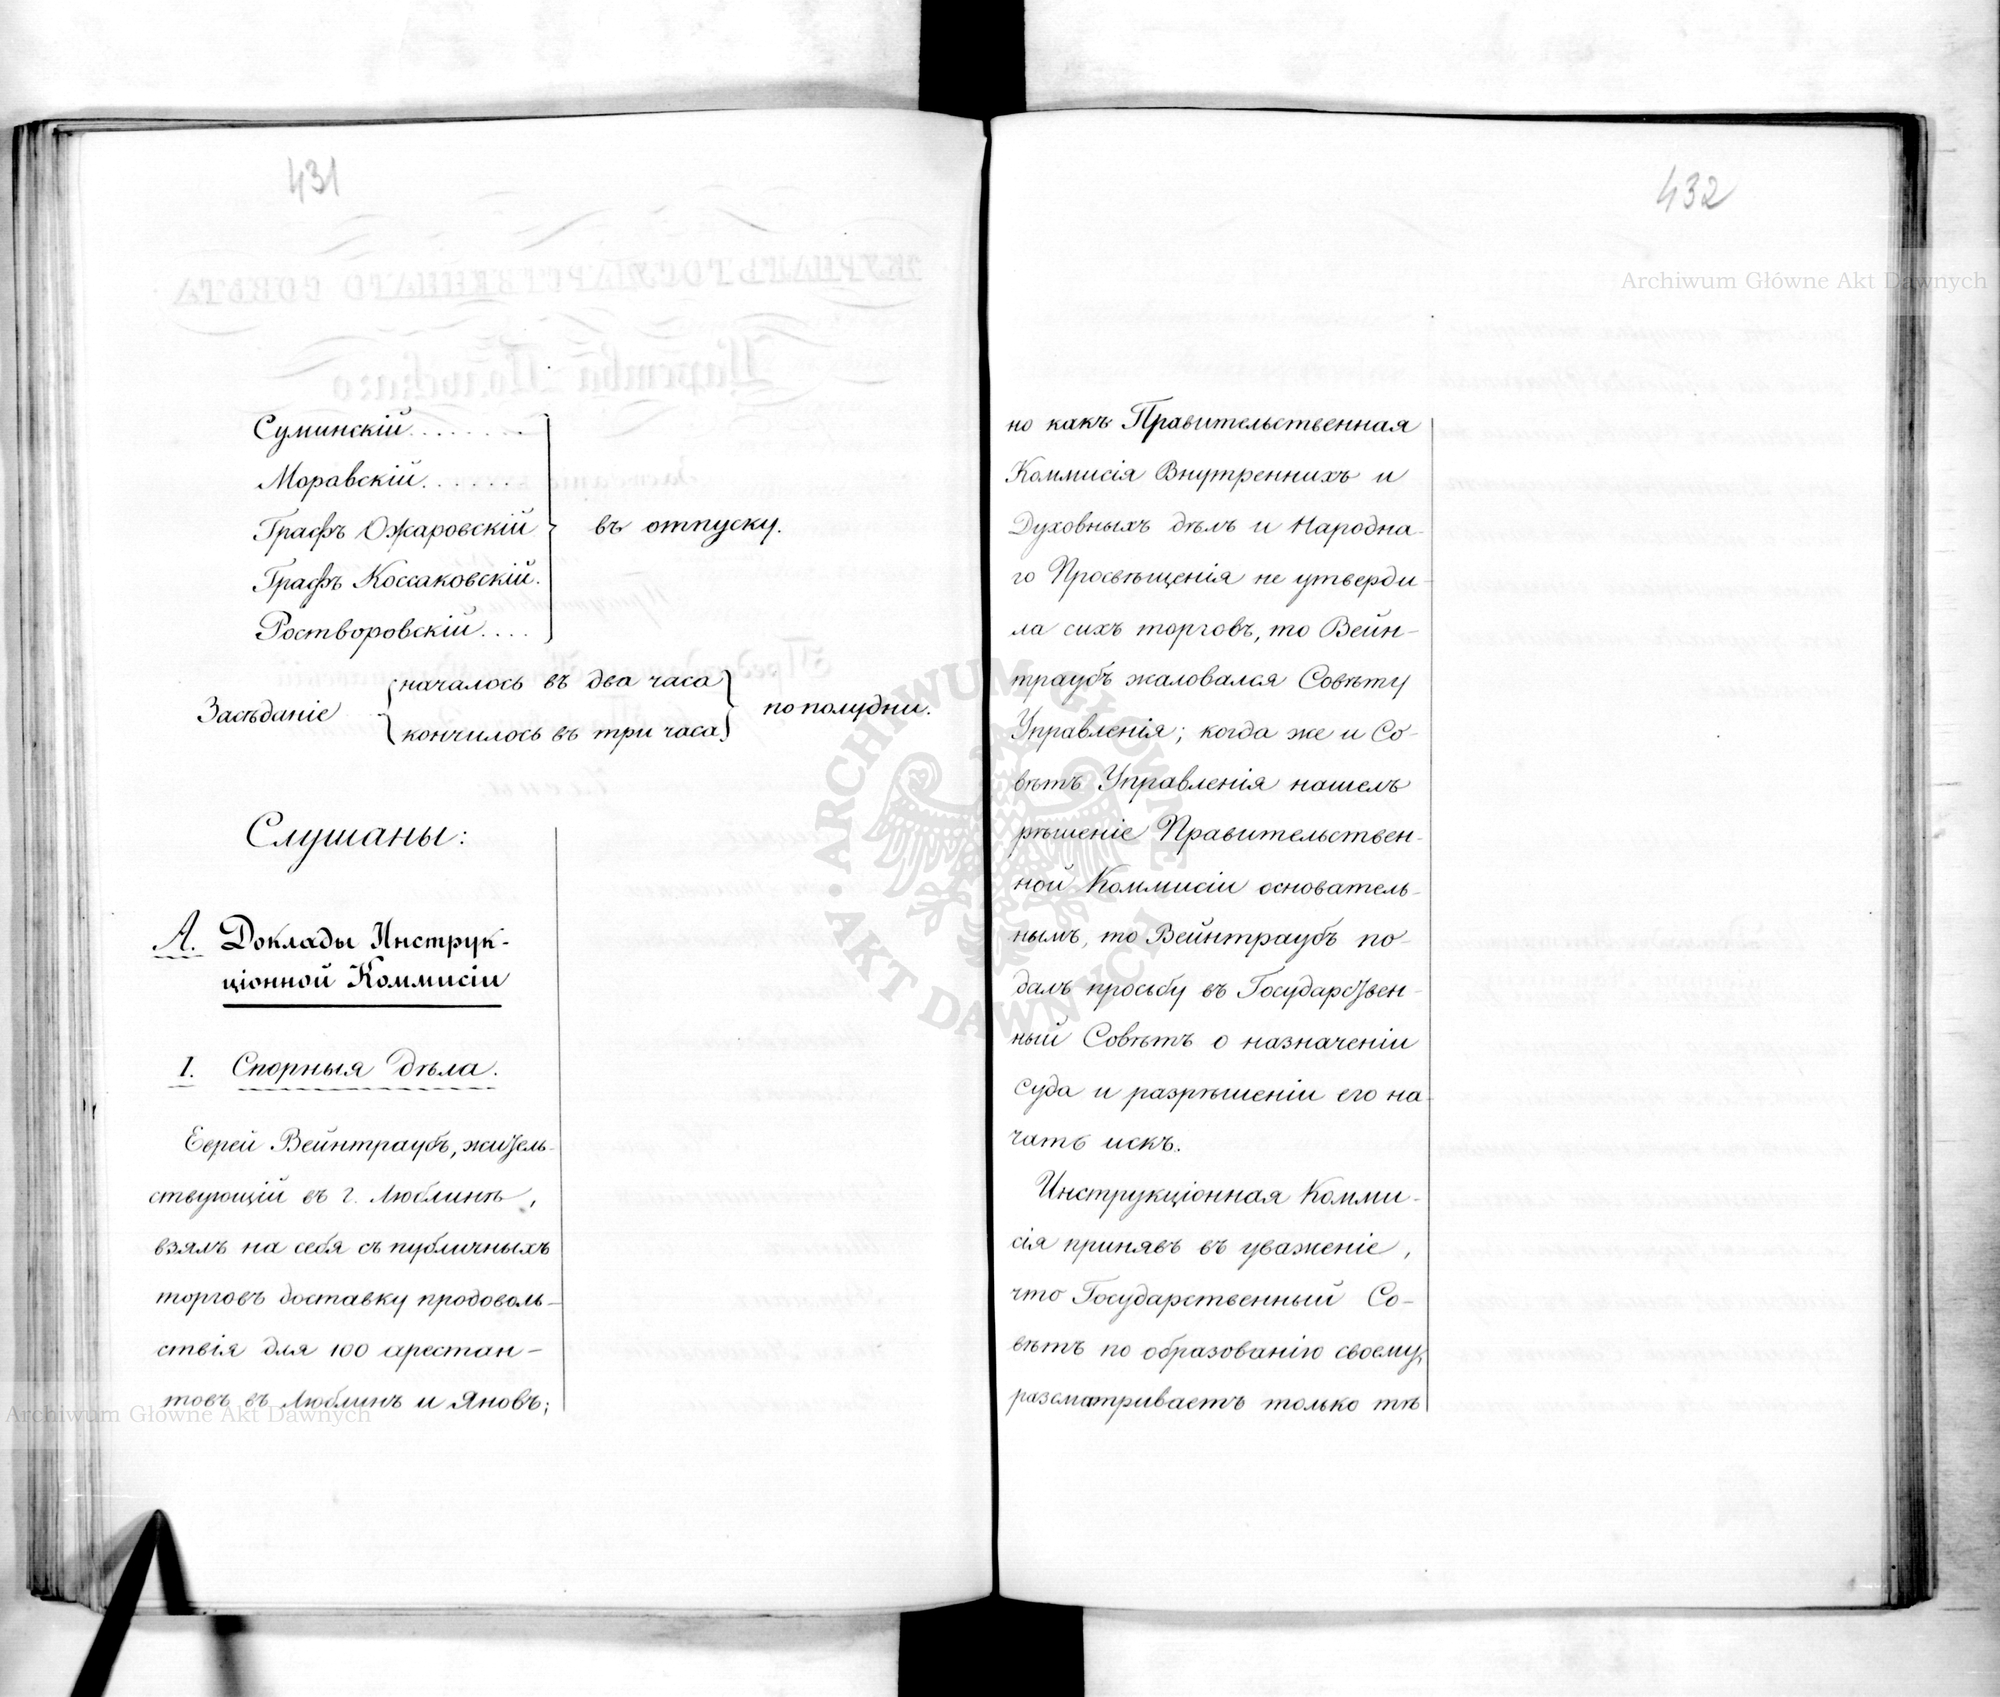 431
Суминскій........
Моравскій......
Графъ Ожаровскій
въ отпуску.
Графъ Коссаковскій.
Ростворовскій....
Засѣданіе
началось въ два часа
кончилось въ три часа
по полудни.
Слушаны:
А. Доклады Инструк-
ціонной Коммисіи
1. Спорныя дѣла.
Еврей Вейнтраубъ, житель-
ствующій въ г. Люблинѣ,
взялъ на себя съ публичныхъ
торговъ доставку продоволь-
ствія для 100 арестан-
товъ въ Люблинъ и Яновъ;
432
но какъ Правительственная
Коммисія Внутреннихъ и
Духовныхъ дѣлъ и Народна-
го Просвѣщенія не утверди-
ла сихъ торговъ, то Вейн-
траубъ жаловался Совѣту
Управленія; когда же и Со-
вѣтъ Управленія нашелъ
рѣшеніе Правительствен-
ной Коммисіи основатель-
нымъ, то Вейнтраубъ по-
далъ просьбу въ Государствен-
ный Совѣтъ о назначеніи
суда и разрѣшеніи его на-
чать искъ.
Инструкціонная Комми-
сія принявъ въ уваженіе,
что Государственный Со-
вѣтъ по образованію своему,
разсматриваетъ только тѣ
Archiwum Główne Akt Dawnych
Archiwum Główne Akt Dawnych
ARCHIWUM GŁÓWNE AKT DAWNYCH